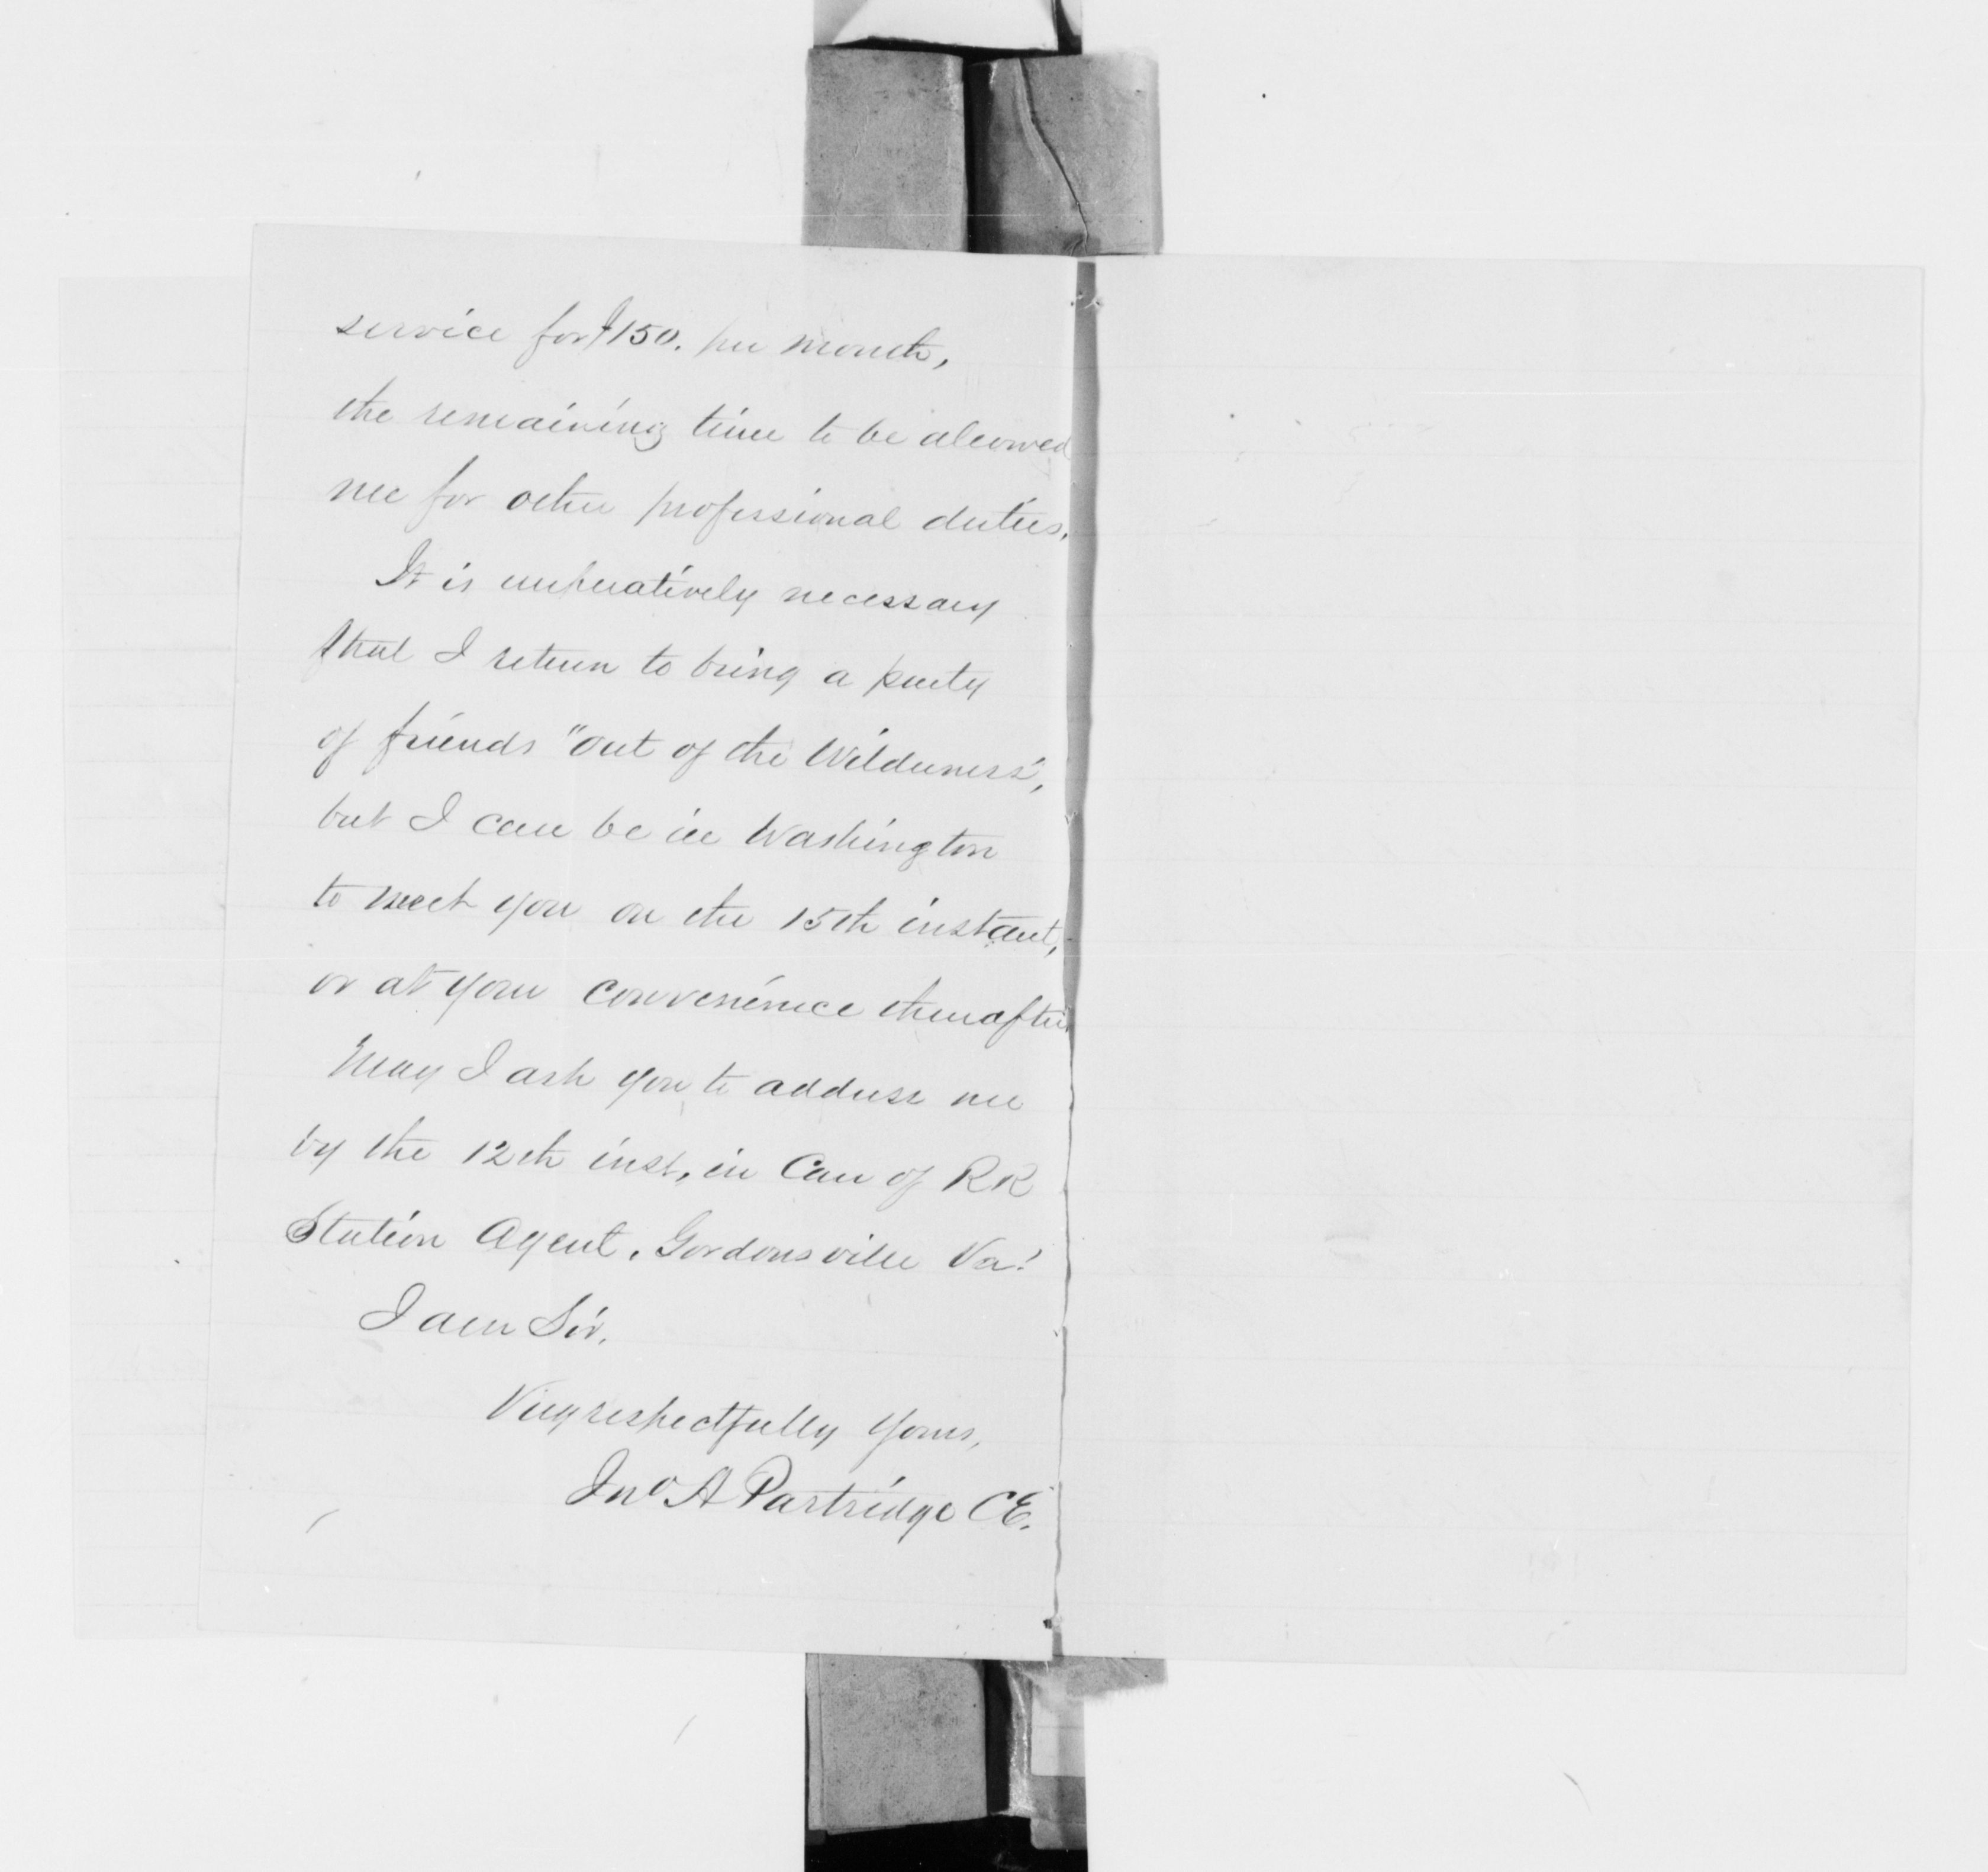 service for $150. per month,
the remaining time to be allowed
me for other professional duties.
It is imperatively necessary
that I return to bring a party
of friends "out of the Wilderness",
but I can be in Washington
to meet you on the 15th instant,
or at your convenience thereafter
May I ask you to address me
by the 12th inst, in Care of RR
Station Agent, Gordonsville Va!
I am Sir,
Very respectfully Yours,
Jno A Partridge CE.